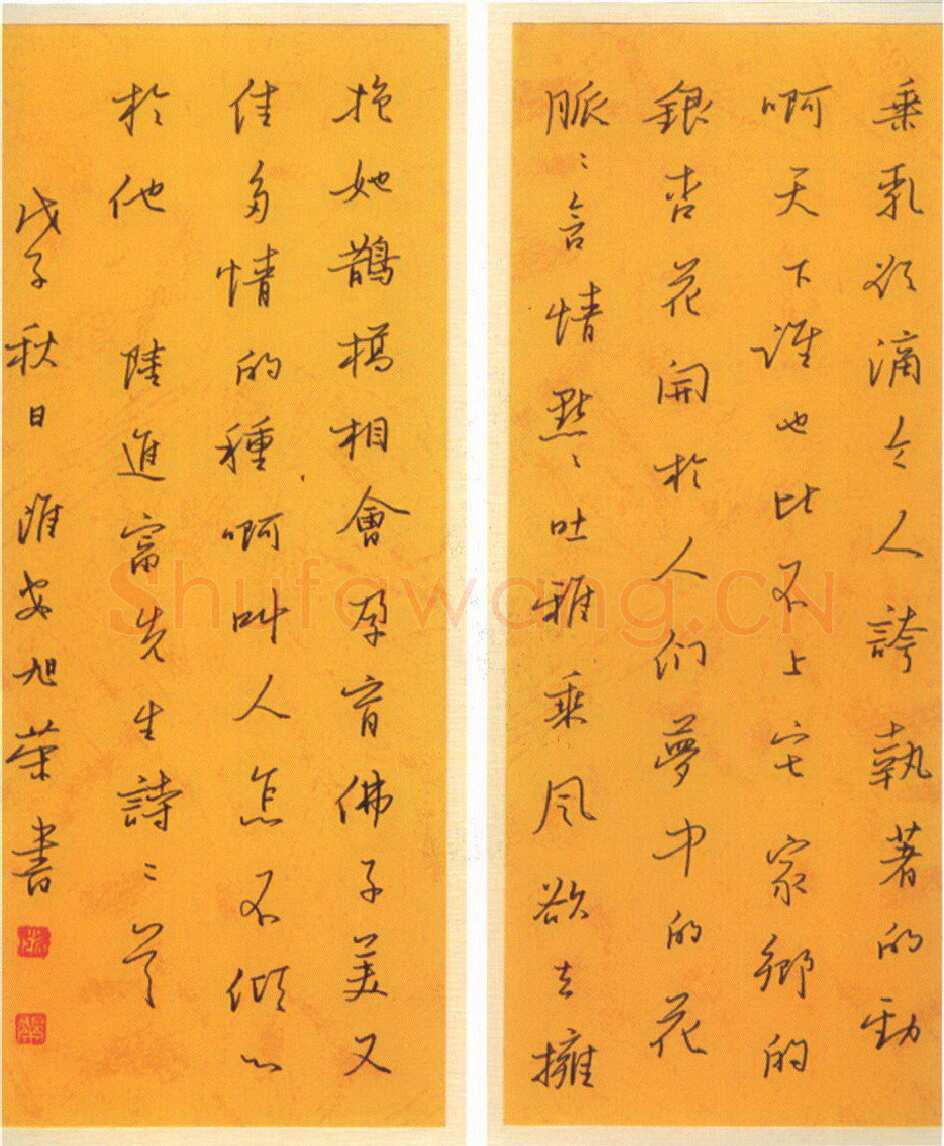 垂乳欲滴令人誇執著的動
啊天下誰也比不上它家鄉的
銀杏花開於人們夢中的花
脈〻含情點〻吐雅乘风欲去擁
抱她鵲橋相會孕育佛子美又
佳多情的種啊叫人怎不傾心
於他 陸進富先生詩二首
戊子秋日 淮安旭荣書
Shufawang.CN